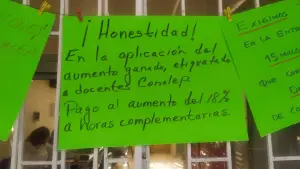 ¡Honestidad!
En la aplicación del
aumento ganado, etiquetado
a docentes Conalep
Pago al aumento del 18%
a horas complementarias.
EXIGIMOS
EN LA